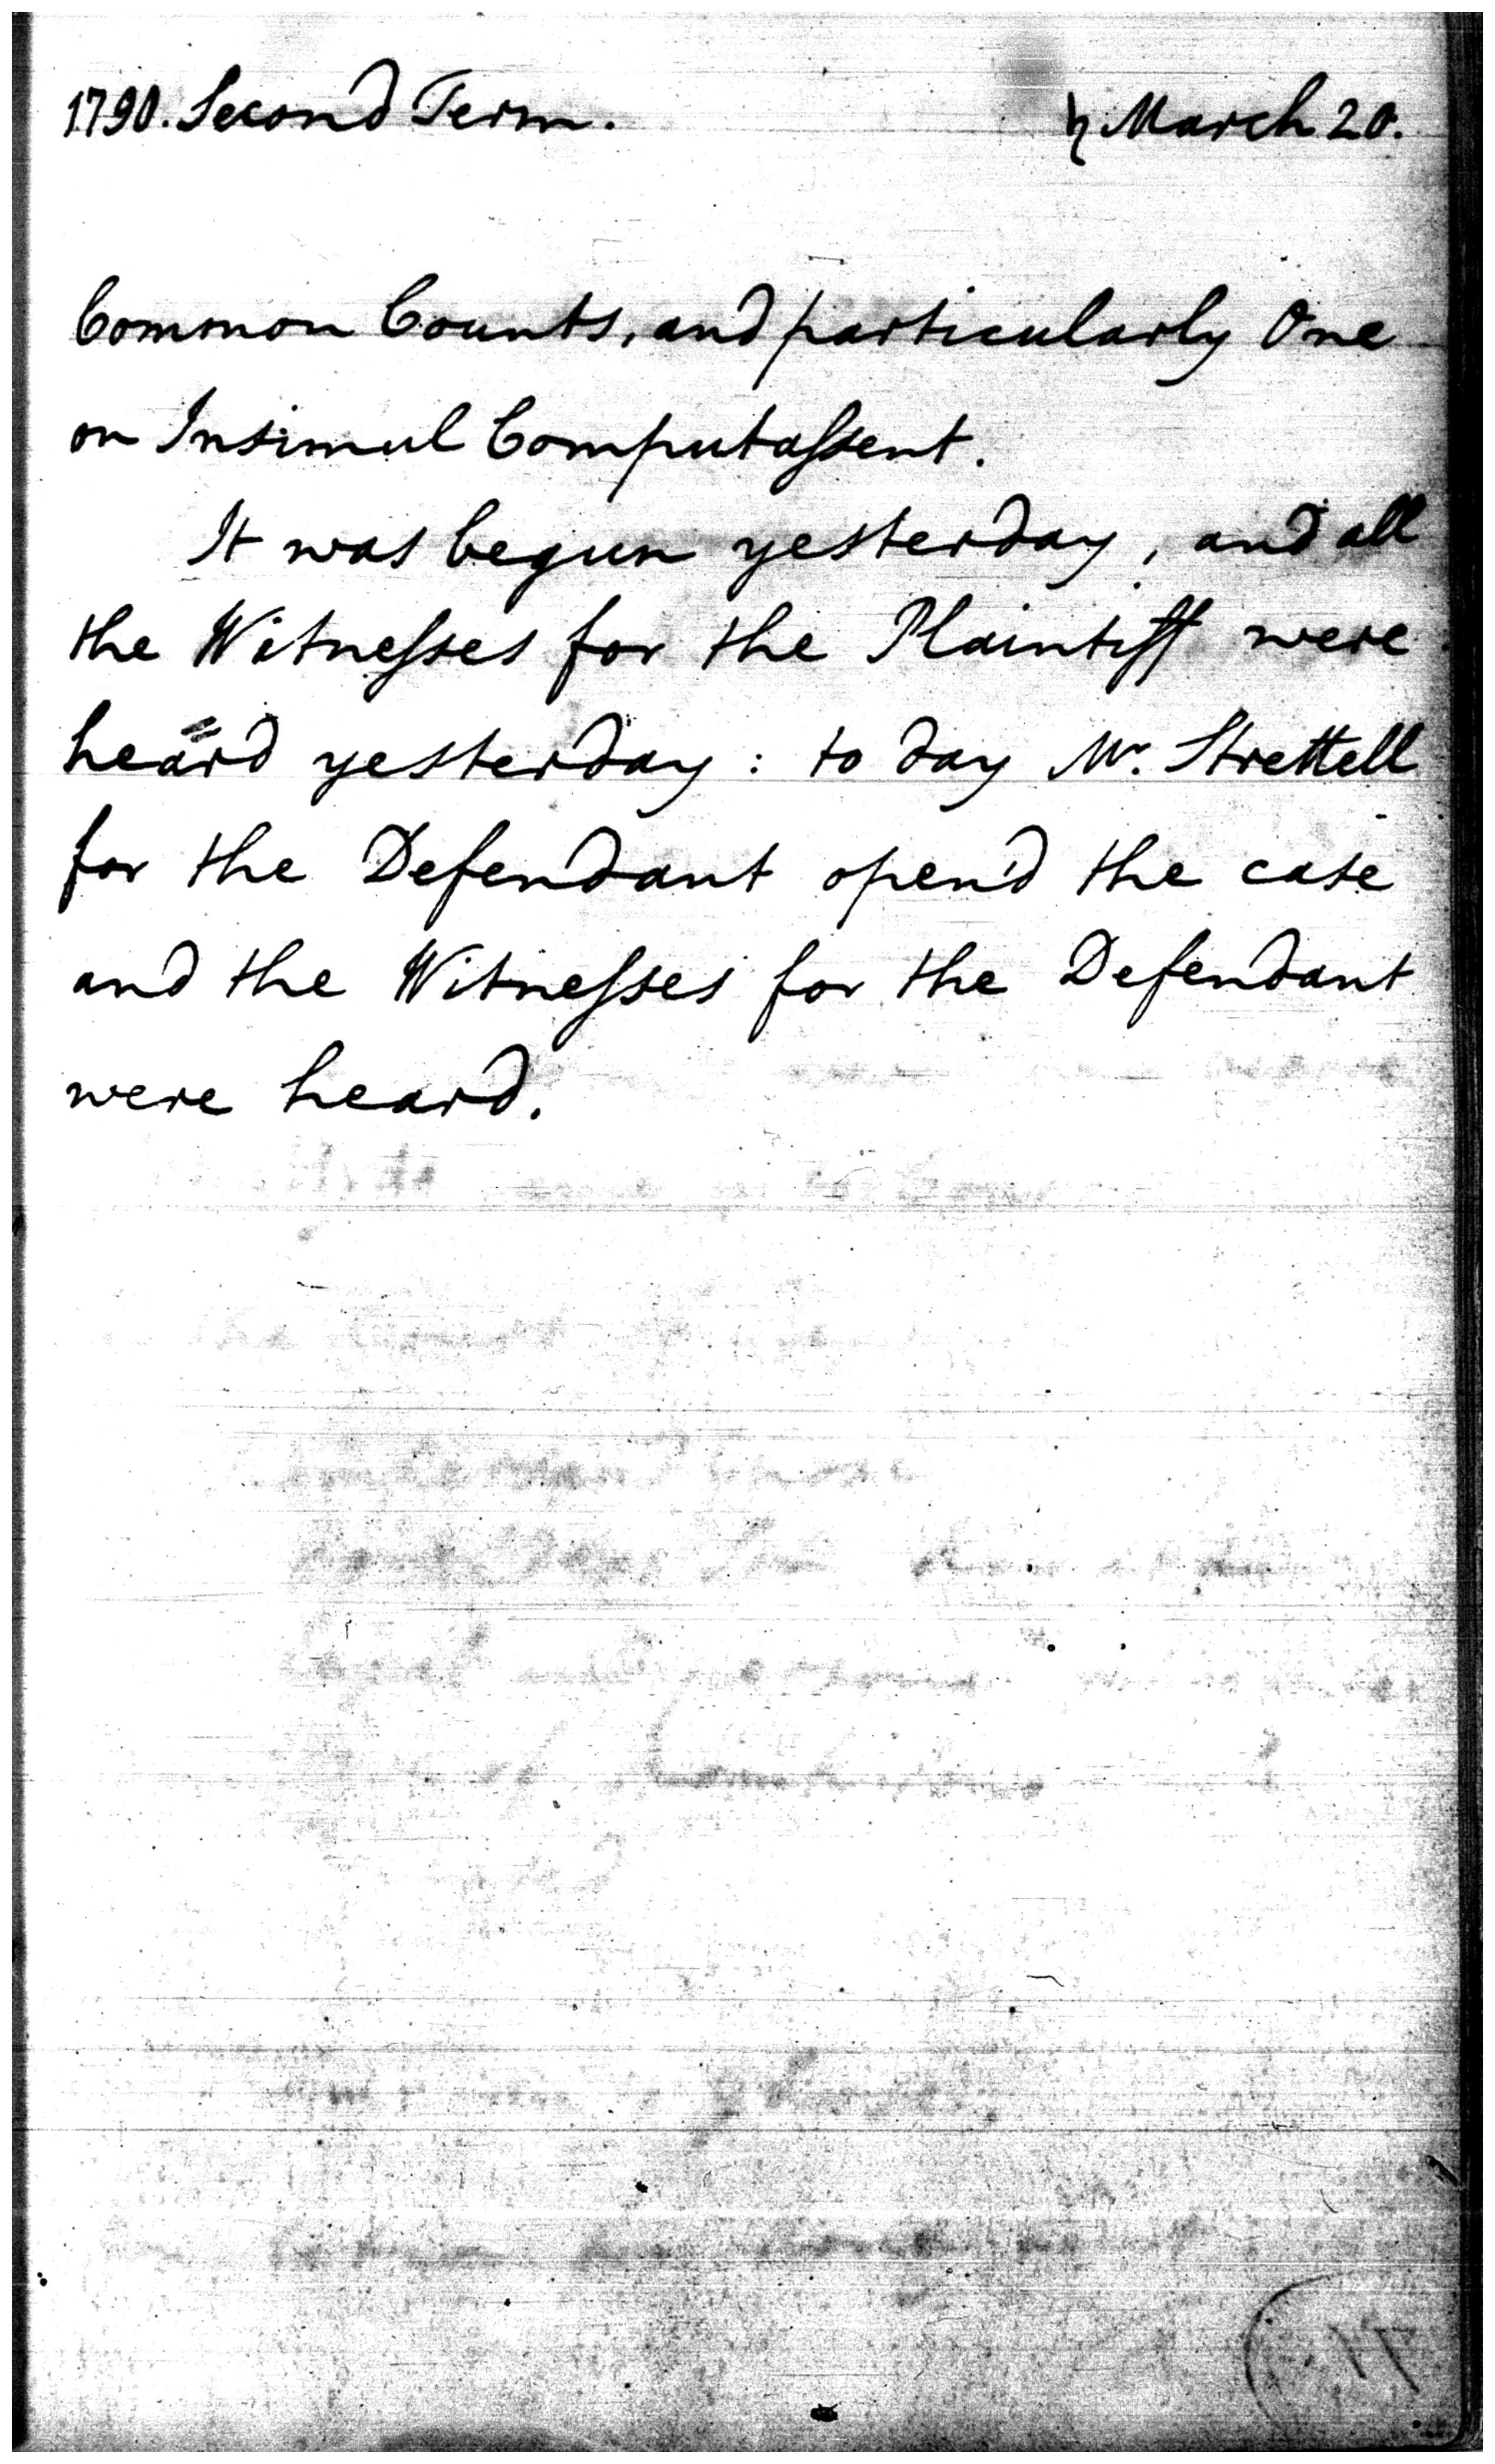 1790. Second Term. ♄ March 20.
Common Counts, and particularly One
on Insimul Computaſsent.
It was begun yesterday, and all
the Witneſses for the Plaintiff were
heard yesterday: to day Mr. Strettell
for the Defendant open'd the case
and the Witneſses for the Defendant
were heard.